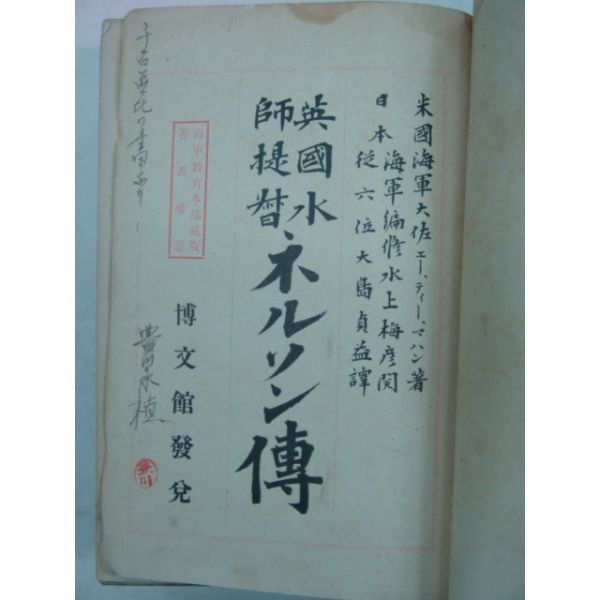 米國海軍大佐エー、ティー、マハン著
日本
海軍編修水上梅彦閲
從六位大島貞益譯
英國水
師提督
ネルソン傳
海軍教育本部藏版
著者准認
博文館發兌